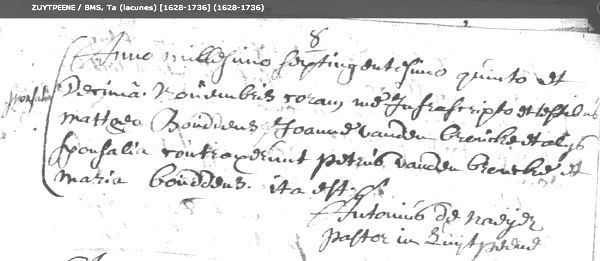 ZUYTPEENE / BMS, Ta (lacunes) [1628-1736] (1628-1736)
8
Anno millesimo septingentesimo quinto et
sponsalia
Decimâ Novembris coram mê Infrascripto et testibus
mattheo Bouddens Joanne vanden brencke et alijs
sponsalia contraxerunt petrus vanden brencke et
maria bouddens ita est
Antonius De
pastor in Zuytpeene